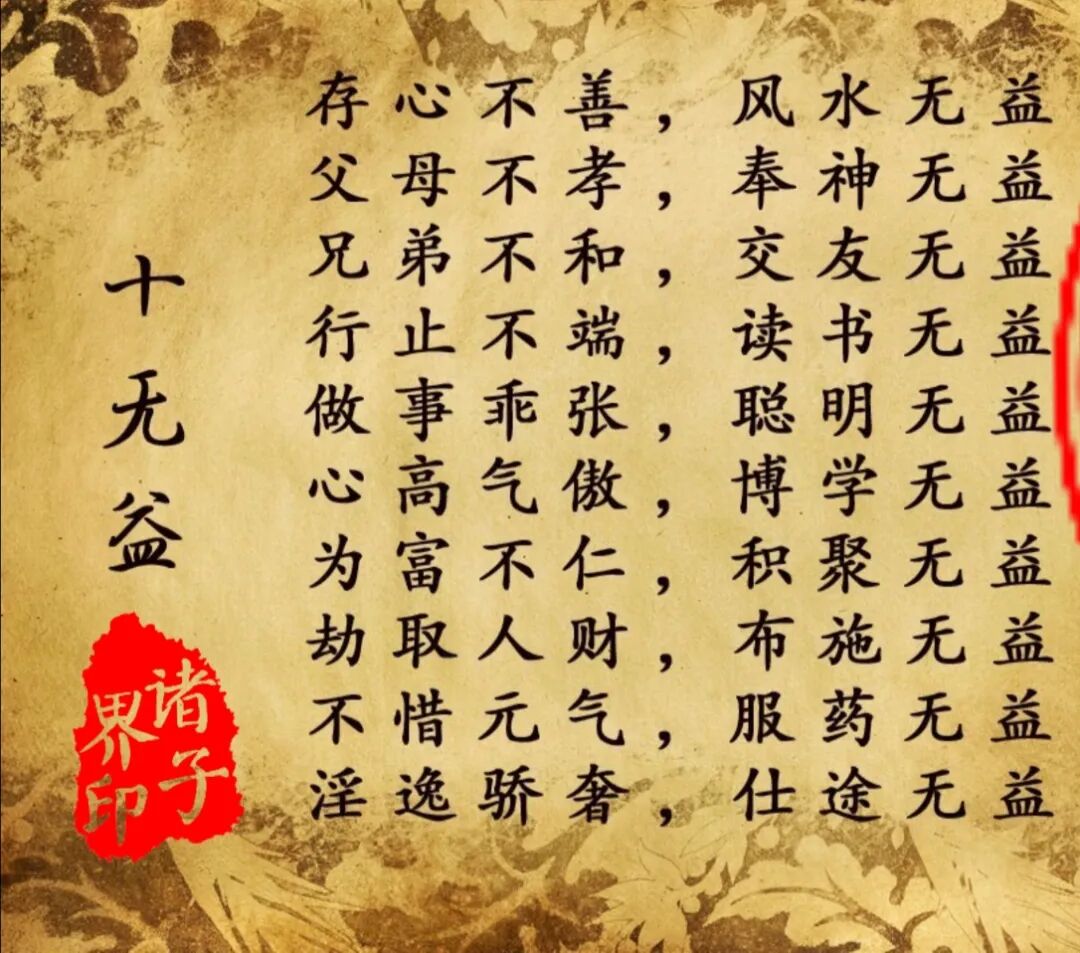 十无益
存心不善，风水无益
父母不孝，奉神无益
兄弟不和，交友无益
行止不端，读书无益
做事乖张，聪明无益
心高气傲，博学无益
为富不仁，积聚无益
劫取人财，布施无益
不惜元气，服药无益
淫逸骄奢，仕途无益
诸子
界印